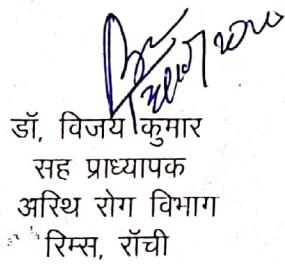 डॉ, विजय कुमार
सह प्राध्यापक
अरिथ रोग विभाग
रिम्स, राॅंची